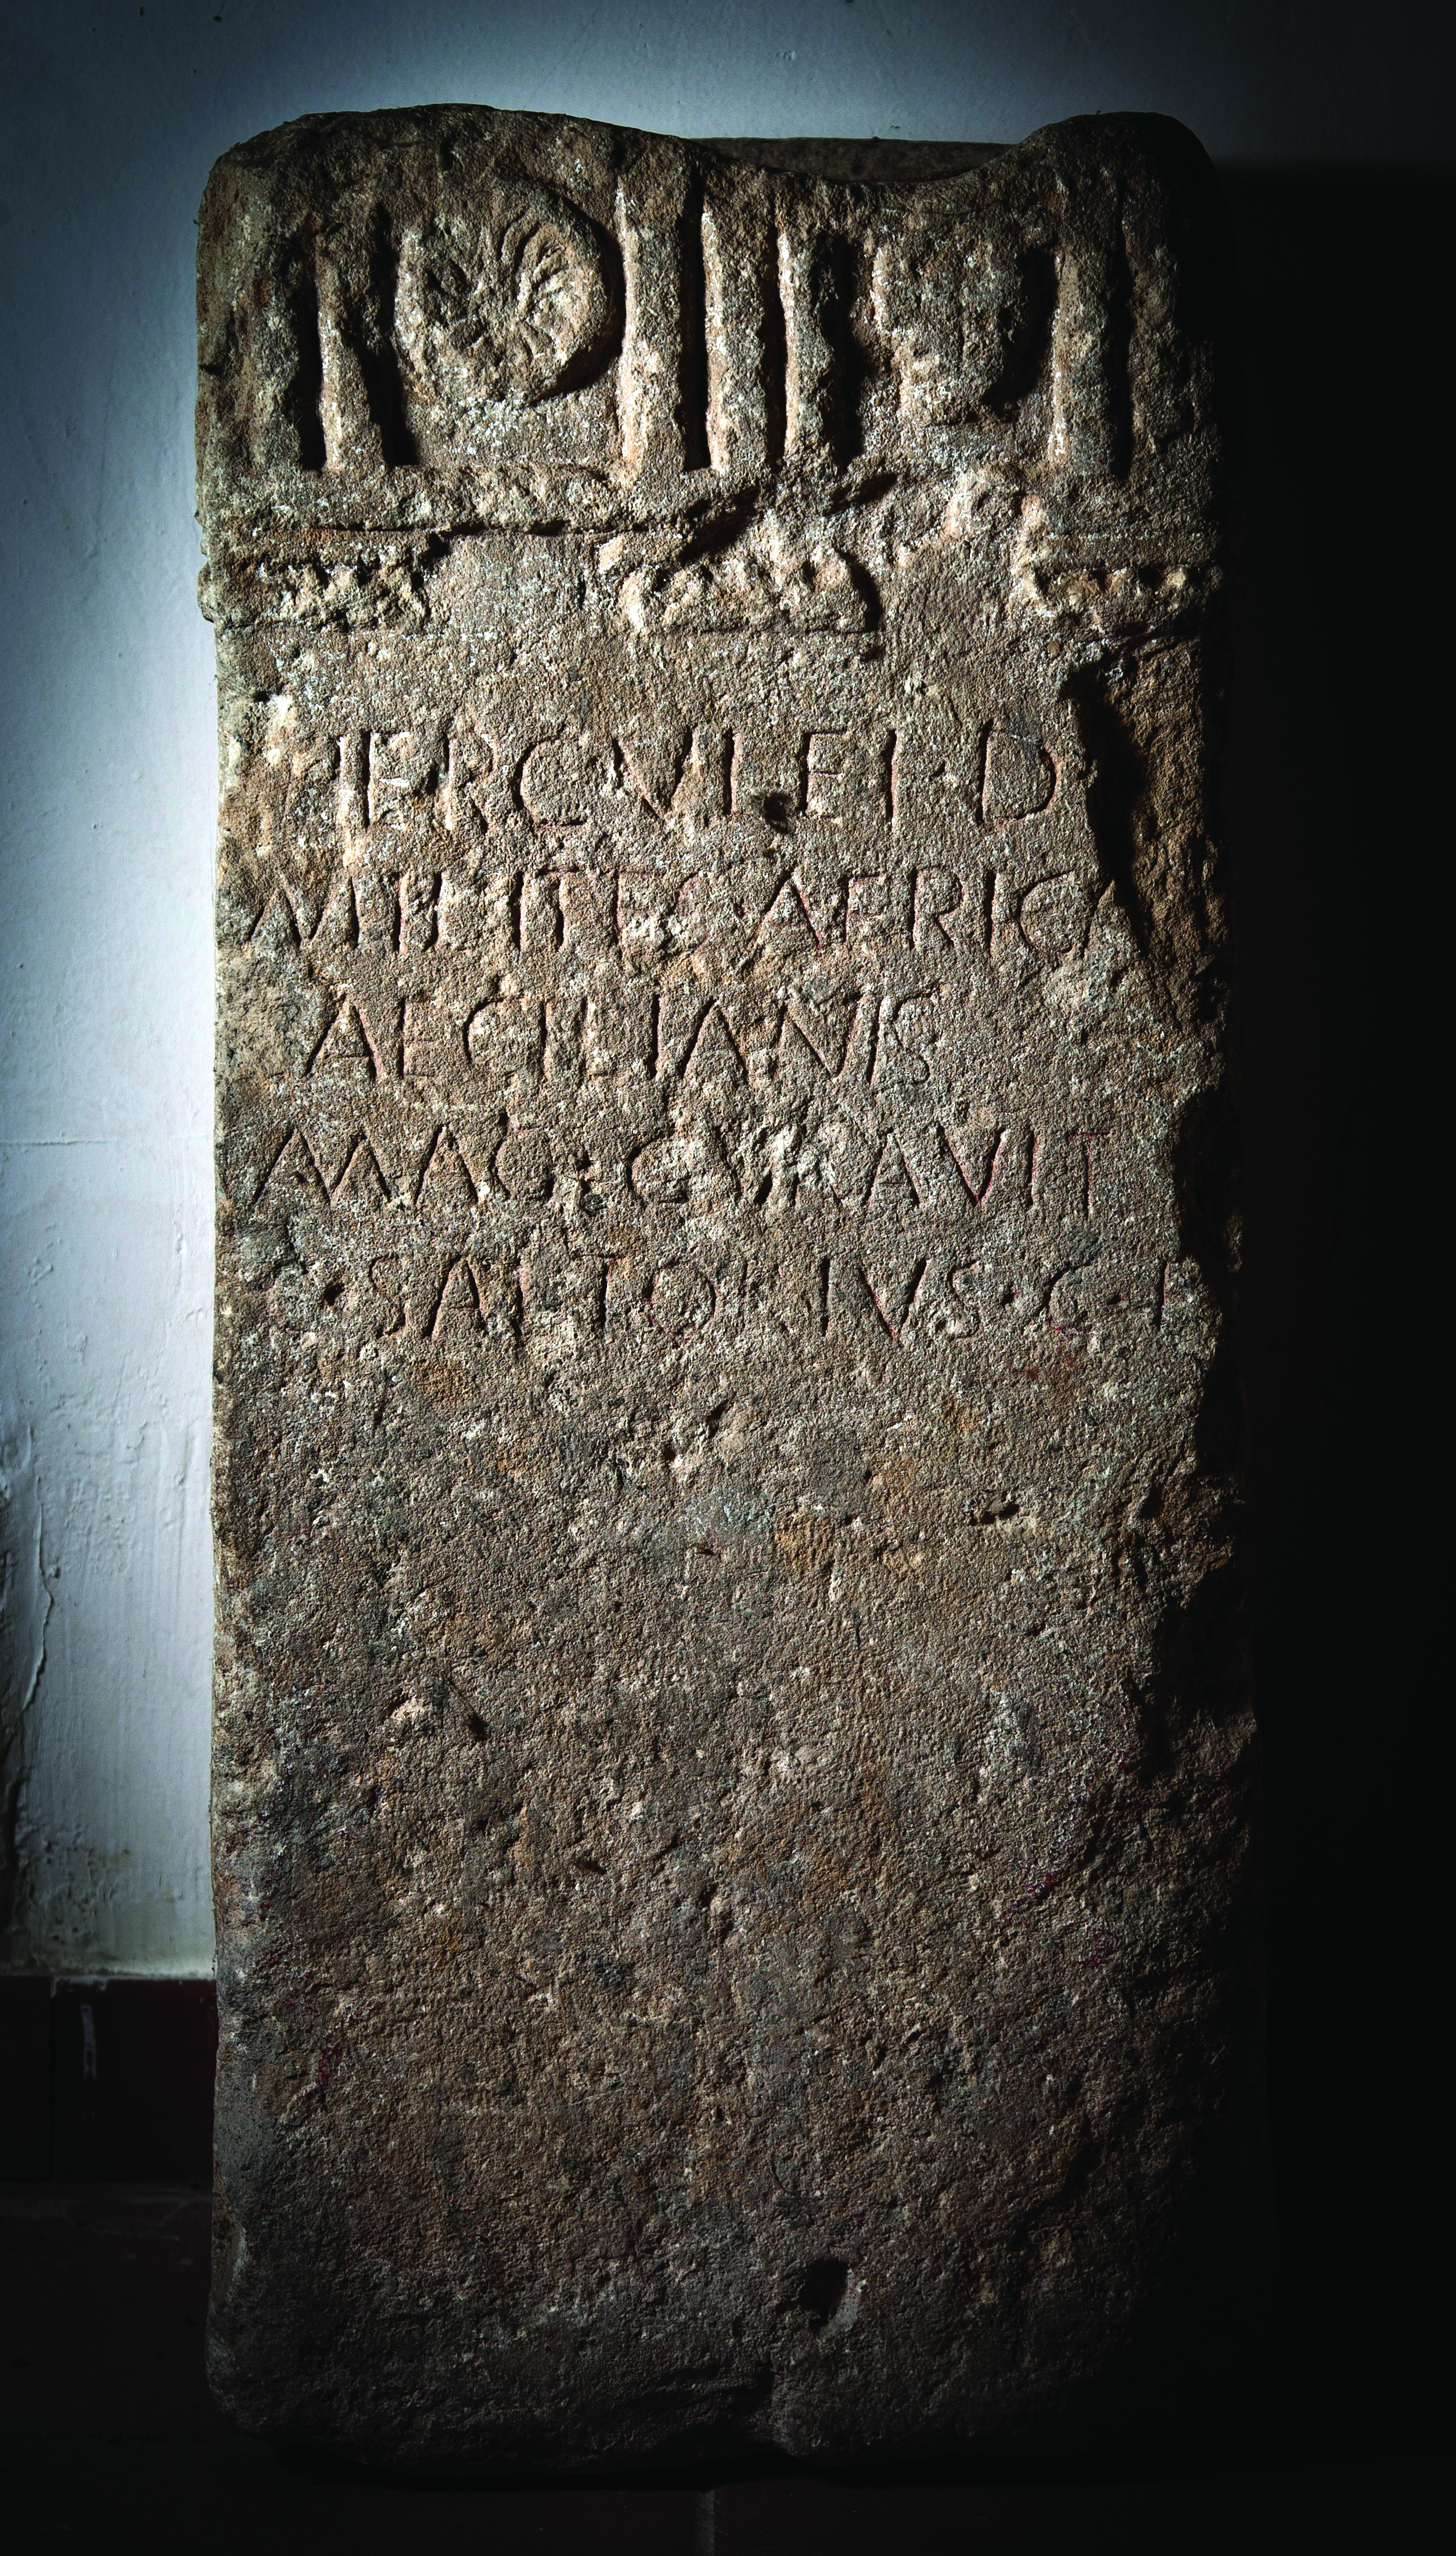 HERCVLEI·D
MILITES·AFRICA
AECILIANIS
MAG·CVRAVIT
·SALTORIVS·C·F